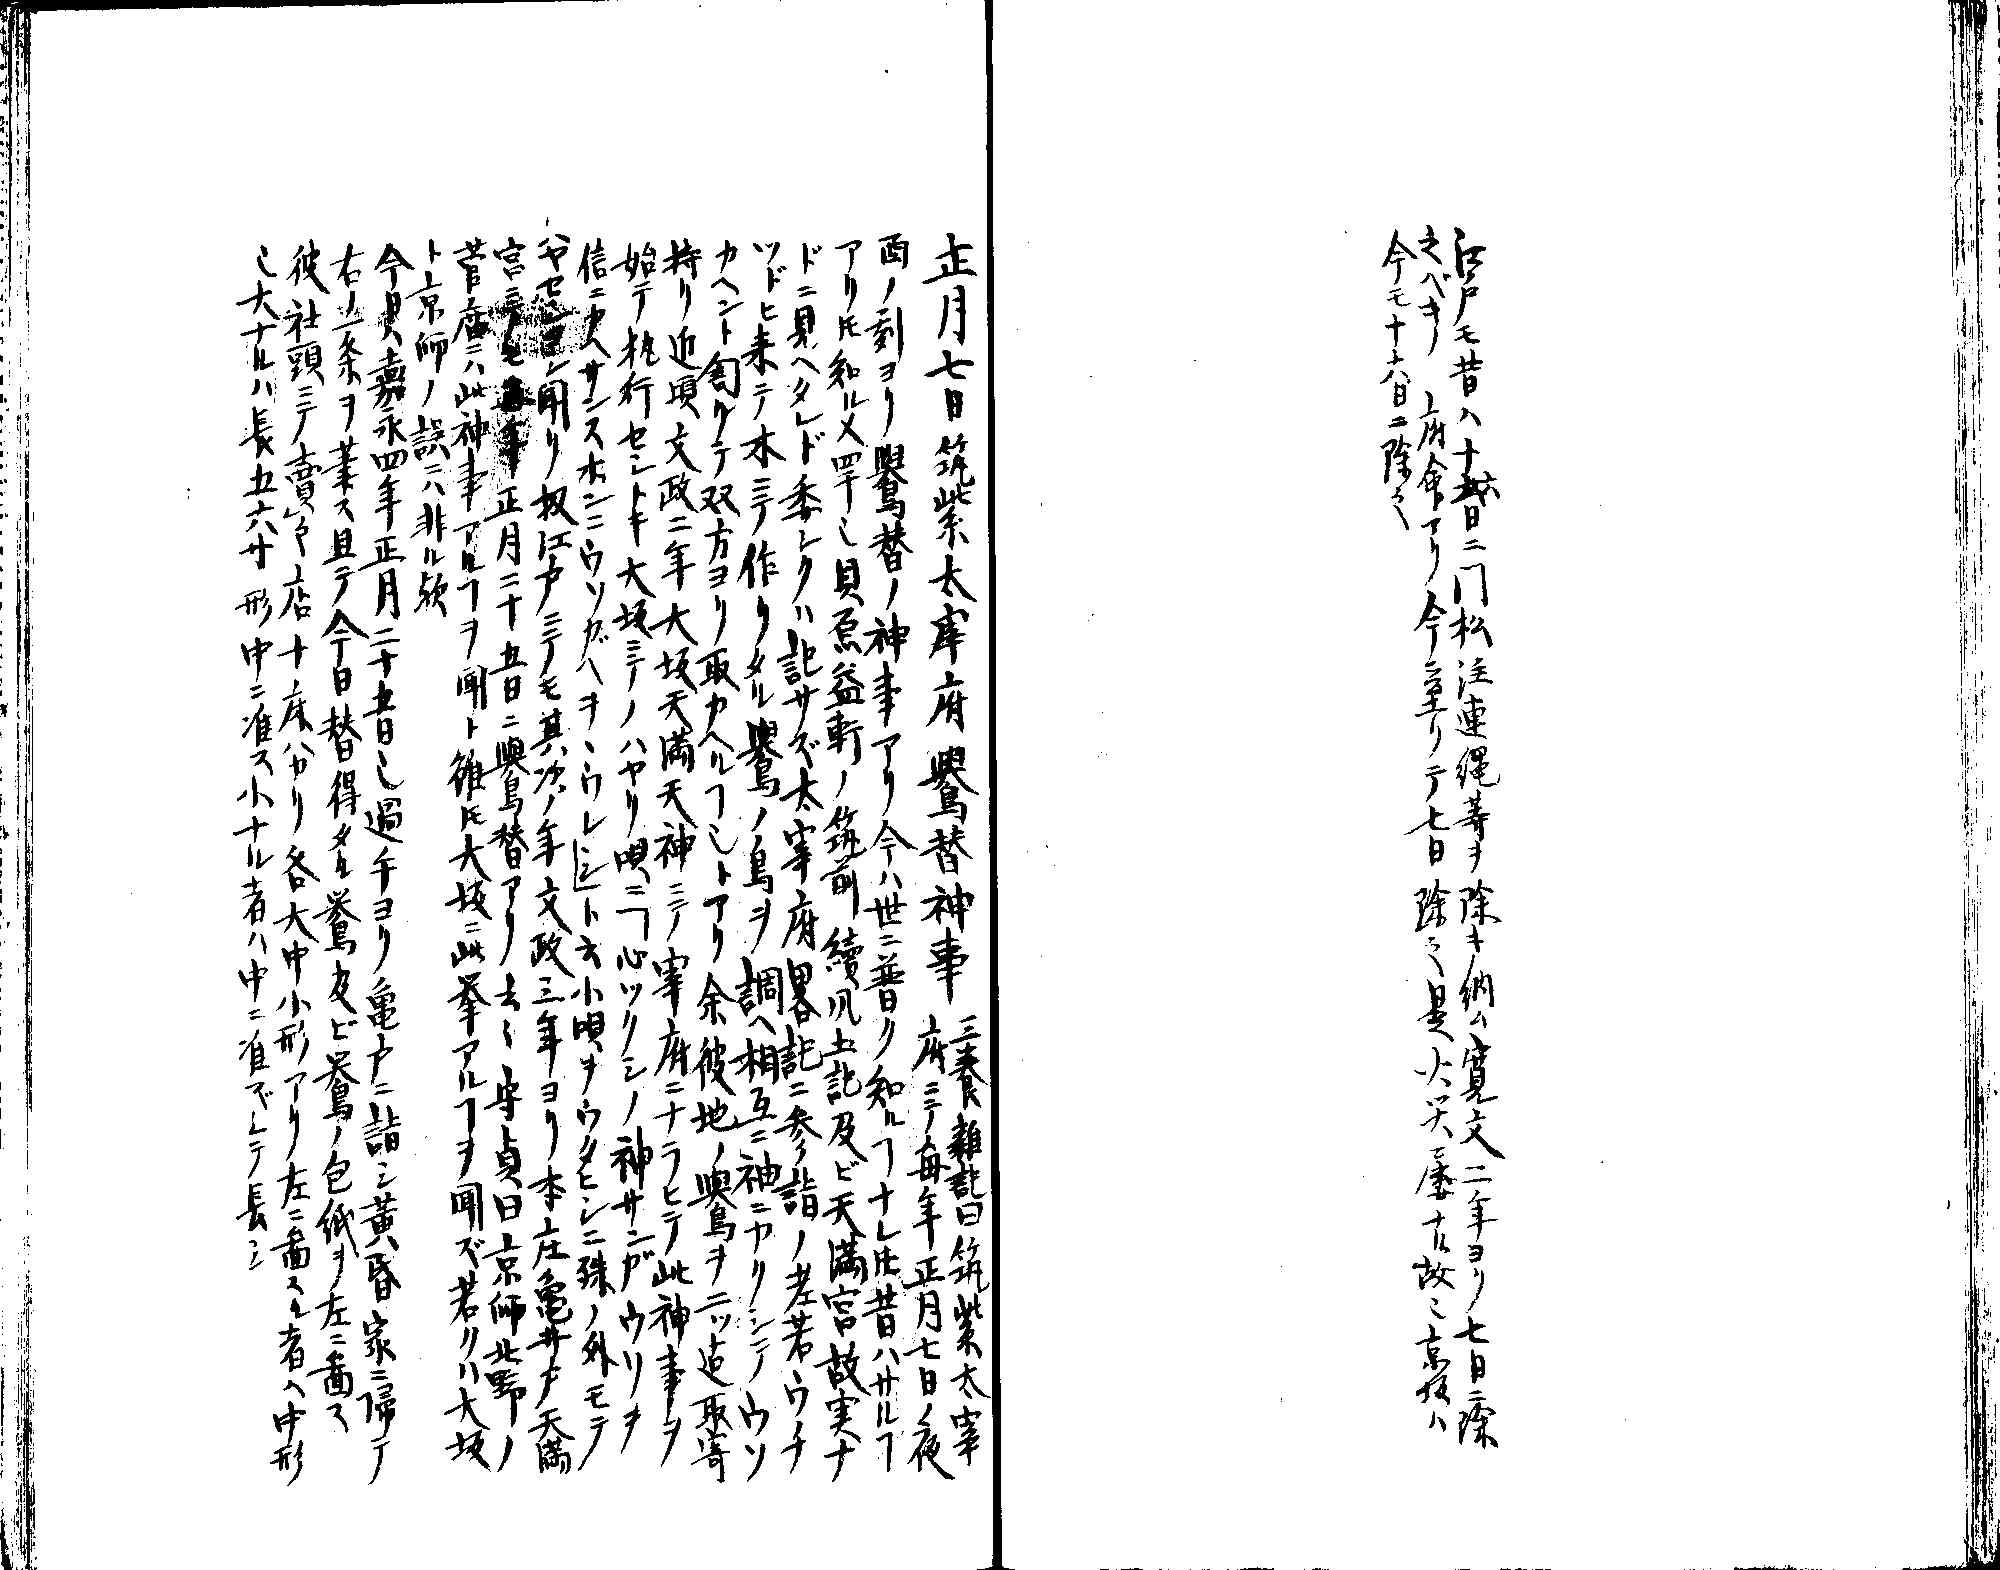 江戸モ昔ハ十六日ニ門松注連縄等ヲ除キ納ム寛文二年ヨリ七日ニ除
之ベキノ府命アリ今ニ至リテ七日除之是火災ニ係ル故也京坂ハ
今モ十六日ニ除之
正月七日筑紫太宰府鷽替神事 三養雑記曰筑紫太宰
府ニテ毎年正月七日ノ夜
酉ノ刻ヨリ鷽替ノ神事アリ今ハ世ニ普ク知ルヿナレ𪜈昔ハサルヿ
アリ𪜈知ル人罕也貝原益軒ノ筑前續風土記及ビ天満宮故実ナ
ドニ見ヘタレド委シクハ記サズ太宰府畧記ニ参詣ノ老若ウチ
ツドヒ来テ木ニテ作リタル鷽ノ鳥ヲ調ヘ相互ニ袖ニヤリシテウソ
カヘント訇リテ双方ヨリ取カヘルヿ也トアリ余彼地ノ鷽ヲ二ツ迄取寄
持リ近頃文政二年大坂天満天神ニテ宰府ニナラヒテ此神事ヲ
始テ執行セシトキ大坂ニテノハヤリ唄ニ「心ツクシノ神サンガウソヲ
信ニカヘサンスホンニウソガヘヲヽウレシ」ト云小唄ヲウタヒシニ殊ノ外モテ
ハヤセシヨシ聞リ扨江戸ニテモ其次ノ年文政三年ヨリ本庄亀井戸天満
宮ニテモ毎年正月二十五日ニ鷽替アリ云々守貞曰京師北野ノ
菅廟ニハ此神事アルヿヲ聞ト雖𪜈大坂ニ此挙アルヿヲ聞ズ若クハ大坂
ト京師ノ誤ニハ非ル歟
今ノ嘉永四年正月二十五日也過午ヨリ亀戸ニ詣シ黄昏家ニ帰テ
右ノ条ヲ筆ス且テ今日替得タル鷽及ビ鷽ノ包紙ヲ左ニ畵ス
彼社頭ニテ賣之店十床バカリ各大中小形アリ左ニ畵スル者ヘ中形
也大ナルハ長五六寸形中ニ准ス小ナル者ハ中ニ准ズレテ長シ